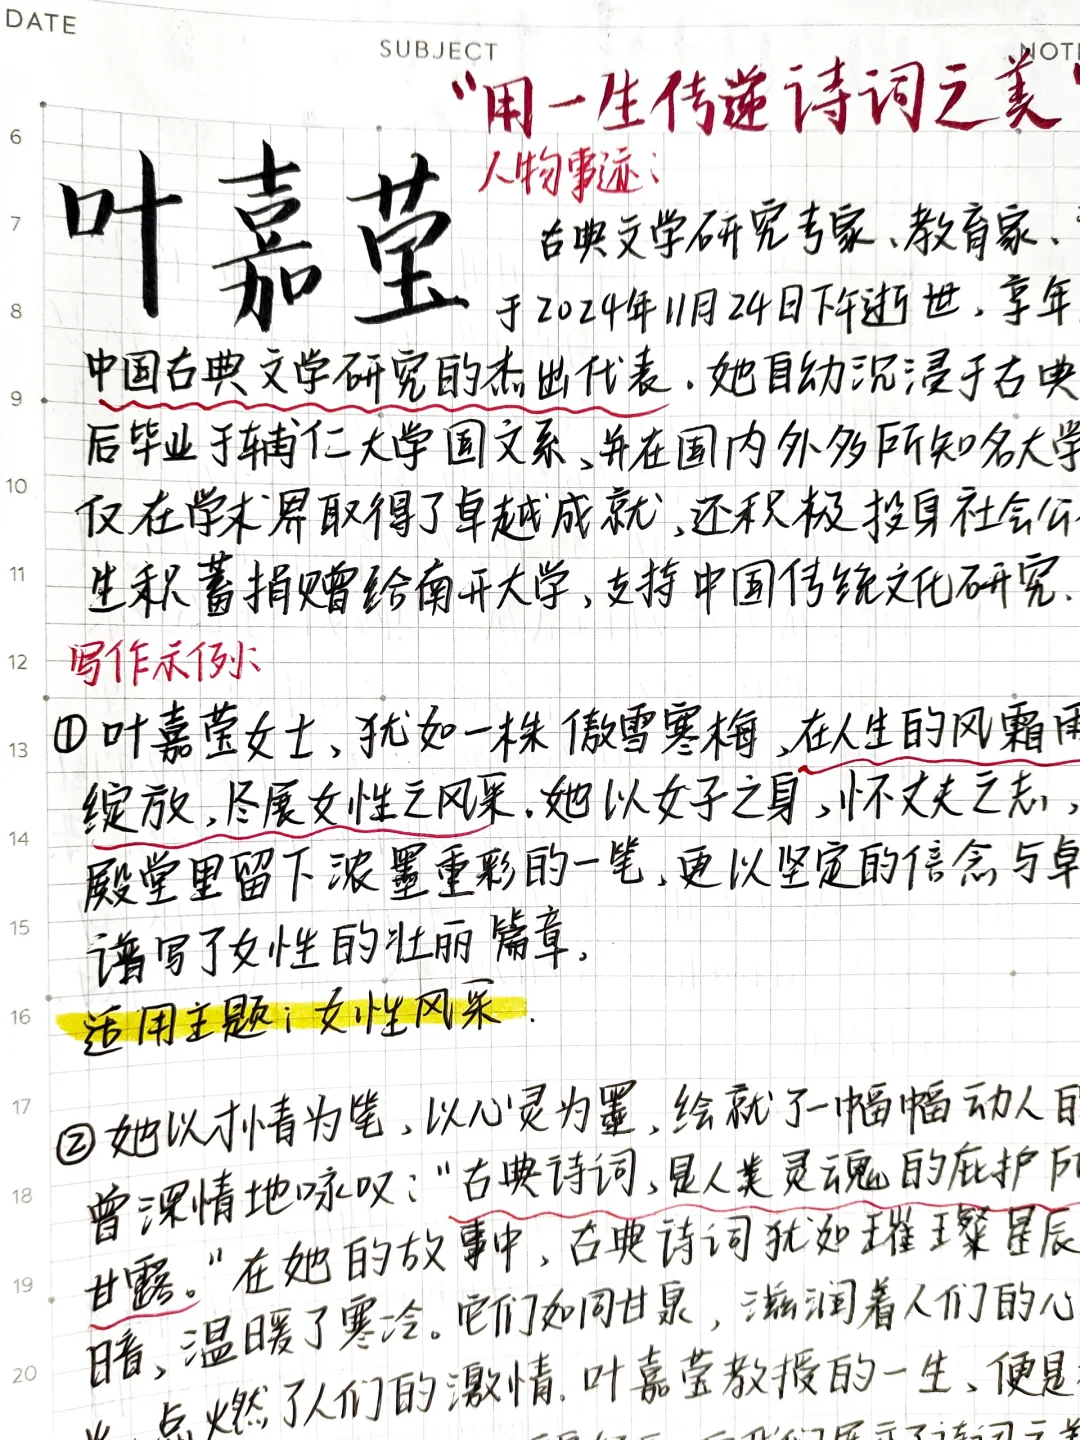 DATE
SUBJECT
NOTE
“用一生传递诗词之美”
叶嘉莹
人物事迹：
古典文学研究专家、教育家、
于2024年11月24日下午逝世，享年
中国古典文学研究的杰出代表。她自幼沉浸于古典
后毕业于辅仁大学国文系，并在国内外多所知名大学
仅在学术界取得了卓越成就，还积极投身社会公
生积蓄捐赠给南开大学，支持中国传统文化研究.
写作示例：
①叶嘉莹女士，犹如一株傲雪寒梅，在人生的风霜雨
绽放，尽展女性之风采。她以女子之身，怀丈夫之志，
殿堂里留下浓墨重彩的一笔，更以坚定的信念与卓
谱写了女性的壮丽篇章。
适用主题：女性风采.
②她以才情为笔，以心灵为墨，绘就了一幅幅动人的
曾深情地咏叹：“古典诗词，是人类灵魂的庇护所
甘露。”在她的故事中，古典诗词犹如璀璨星辰
暗，温暖了寒冷。它们如同甘泉，滋润着人们的心
点燃了人们的激情。叶嘉莹教授的一生，便是
6
7
8
9
10
11
12
13
14
15
16
17
18
19
20